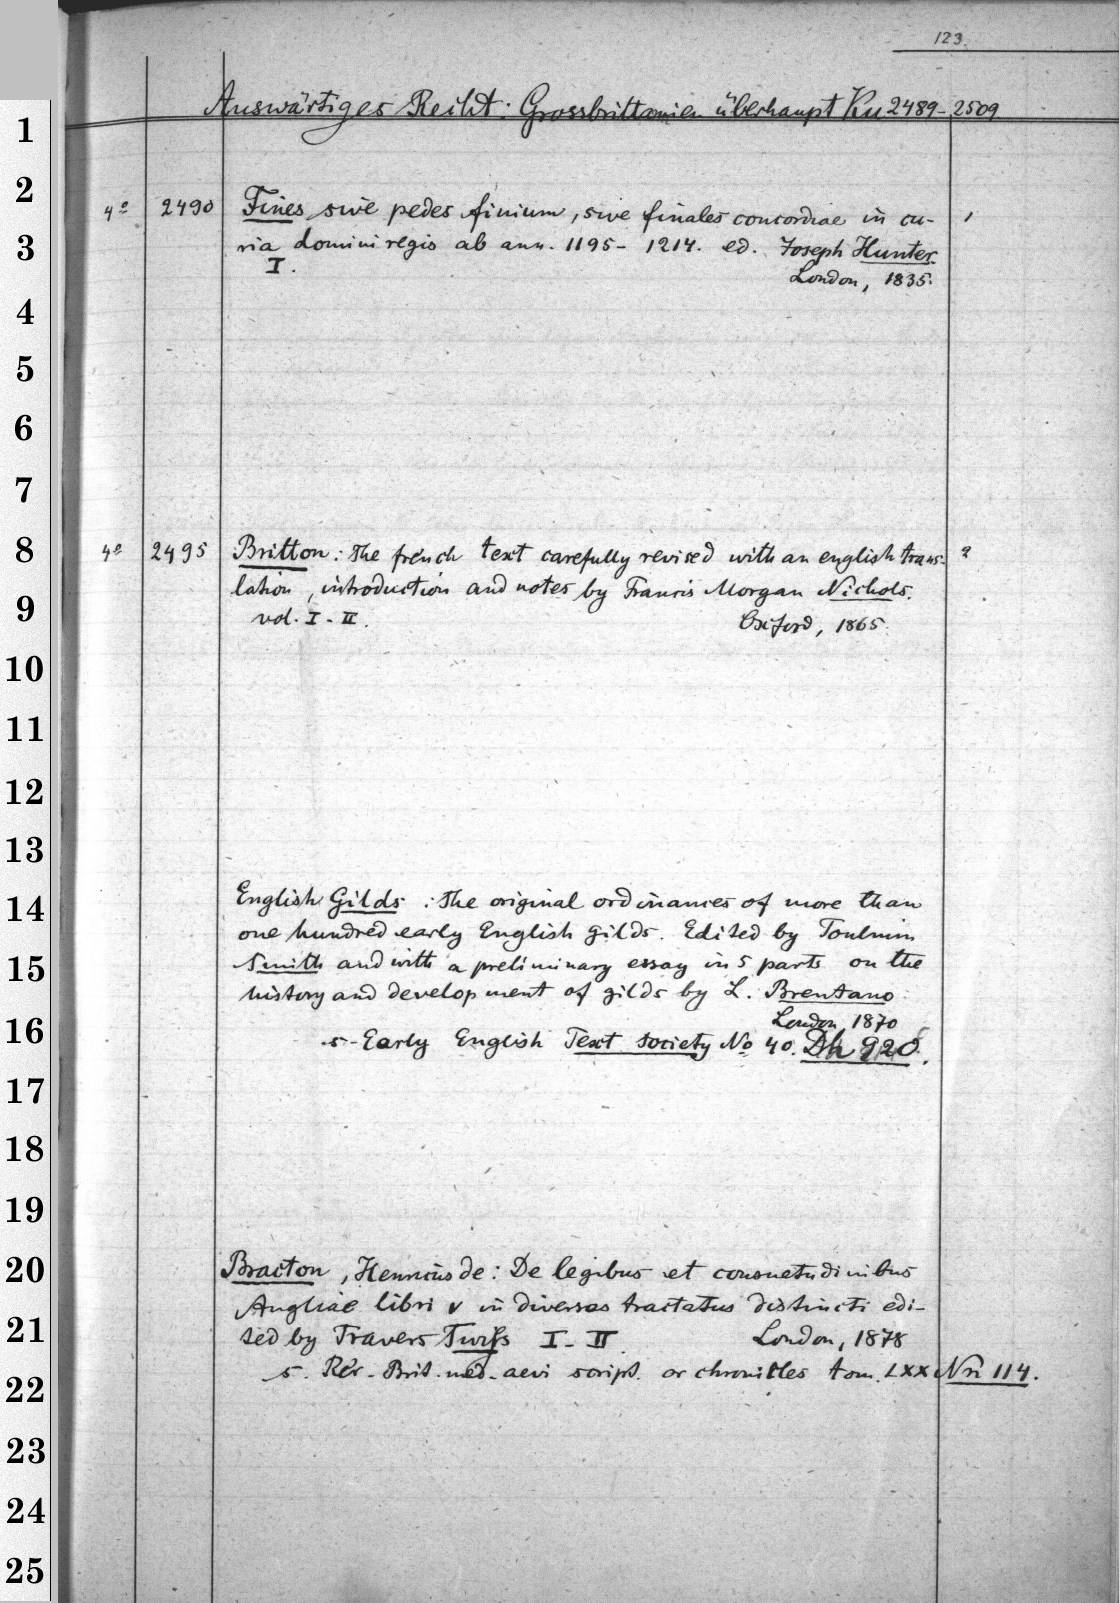 123.
Auswärtiges Recht: Grossbrittanien überhaupt Ku 2489-2509
1
2
4º 2490 Fines sive pedes finium, sive finales concordiae in cu- 1
3
ria domini regis ab ann. 1195- 1214. ed. Joseph Hunter.
I. London, 1835.
4
5
6
7
8
4º 2495 Britton: The french text carefully revised with an english trans- 2
lation, introduction and notes by Francis Morgan Nichols.
9
vol. I-II. Oxford, 1865.
10
11
12
13
14
English Gilds: The original ordinances of more than
one hundred early English gilds. Edited by Toulmin
15
Smith and with a preliminary essay in 5 parts on the
history and development of gilds by L. Brentano
London 1870
16
s. Early English Text society No 40. Dk 920.
17
18
19
20
Bracton, Henricus de: De legibus et consuetudinibus
Angliae libri v in diversos tractatus distincti edi-
21
ted by Travers Twiss I-II. London, 1878
22
s. Rer. Brit. med. aevi script. or chronicles tom. LXX Nn 114.
23
24
25